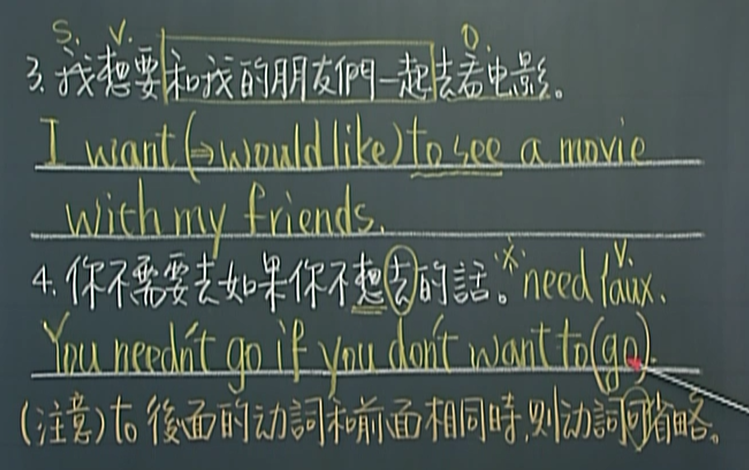 S. V. O.
3. 我想要和我的朋友們一起去看电影。
I want (→would like) to see a movie
with my friends.
4. 你不需要去如果你不想去的話。 need V. aux.
You needn't go if you don't want to (go).
(注意) to 後面的动詞和前面相同時,则动詞可省略。